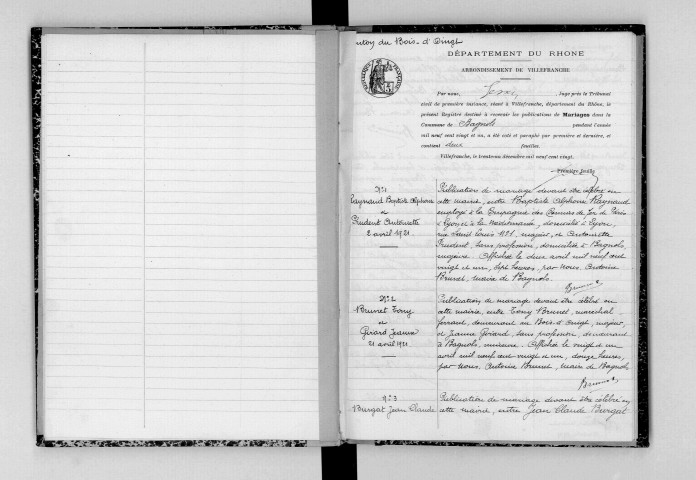 nton du Bois-d'Oingt
DÉPARTEMENT DU RHONE
ARRONDISSEMENT DE VILLEFRANCHE
Par nous, Juge près le Tribunal
civil de première instance, séant à Villefranche, département du Rhône, le
présent Registre destiné à recevoir les publications de Mariages dans la
Commune de Bagnols pendant l'année
mil neuf cent vingt et un, a été coté et paraphé par première et dernière, et
contient deux feuilles.
Villefranche, le trente-un décembre mil neuf cent vingt.
Première feuille
N°1
Raynaud Baptiste Alphonse
et
Prudent Antoinette
2 avril 1921
Publication de mariage devant être célébré en
cette mairie, entre Baptiste Alphonse Raynaud
employé à la Compagnie des Chemins de fer de Paris
à Lyon et à la Méditerranée, domicilié à Lyon,
rue Saint Louis N°1, majeur, et Antoinette
Prudent, sans profession, domiciliée à Bagnols,
majeure. Affichée le deux avril mil neuf cent
vingt et un, sept heures, par nous, Antoine
Brunet, maire de Bagnols.
Brunet
N°2
Brunet Tony
et
Girard Jeanne
21 avril 1921
Publication de mariage devant être célébré en
cette mairie, entre Tony Brunet, maréchal-
ferrant, demeurant au Bois-d'Oingt, majeur,
et Jeanne Girard, sans profession, demeurant
à Bagnols, mineure. Affichée le vingt et un
avril mil neuf cent vingt et un, douze heures,
par nous, Antoine Brunet, maire de Bagnols
Brunet
N°3
Burgat Jean Claude
Publication de mariage devant être célébré en
cette mairie, entre Jean Claude Burgat